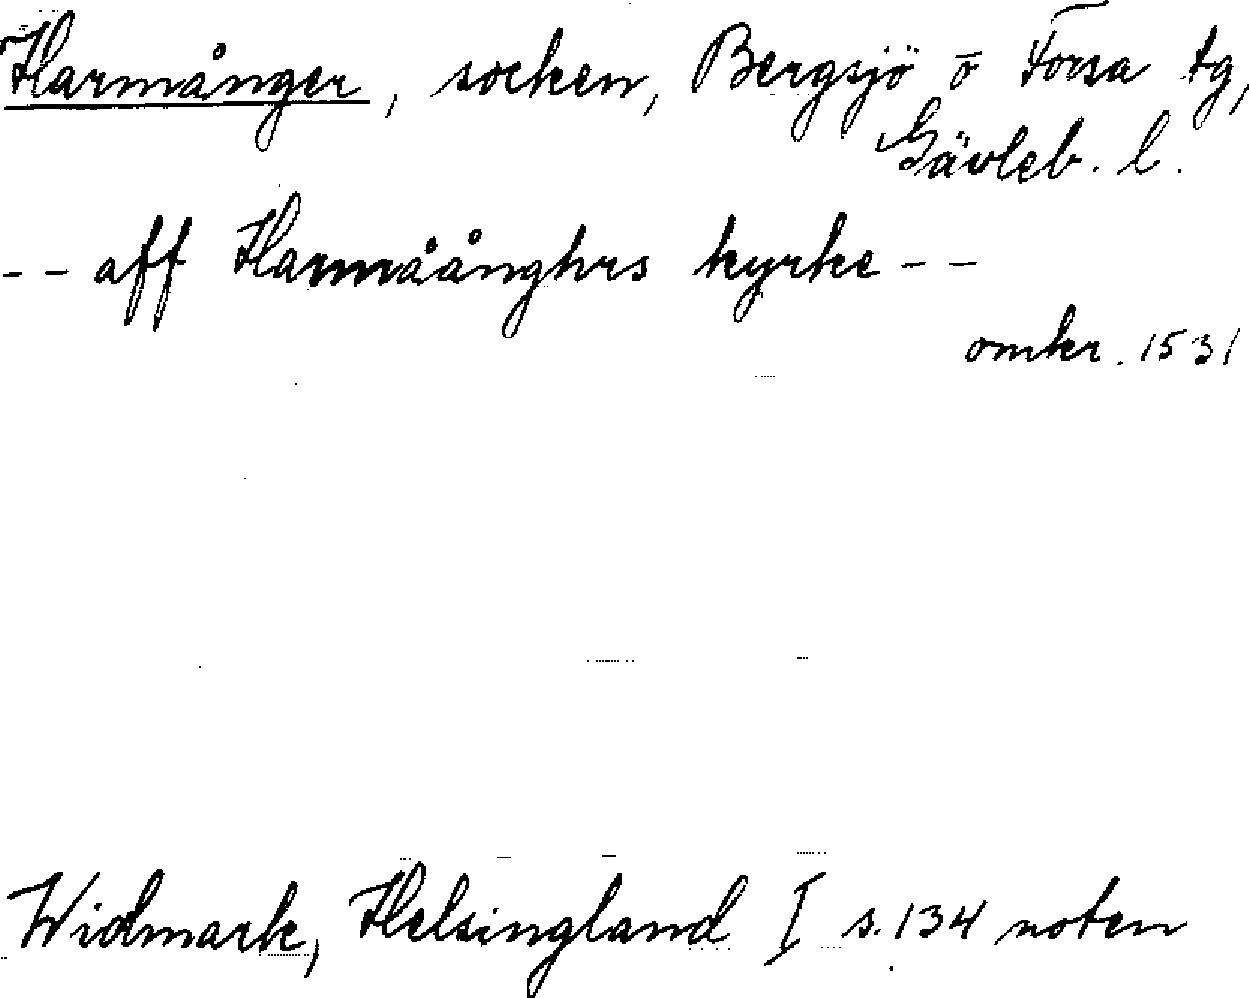 Harmånger, socken, Bergsjö o Forsa tg,
Gävleb. l.
-- aff Harmåånghrs kyrke --
omkr. 1531
Widmark, Helsingland I s. 134 noten